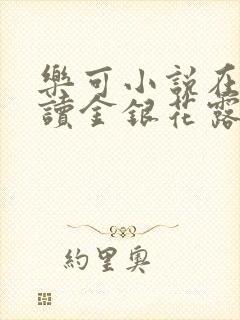 樂可小說在
讀金銀花露
約里奧